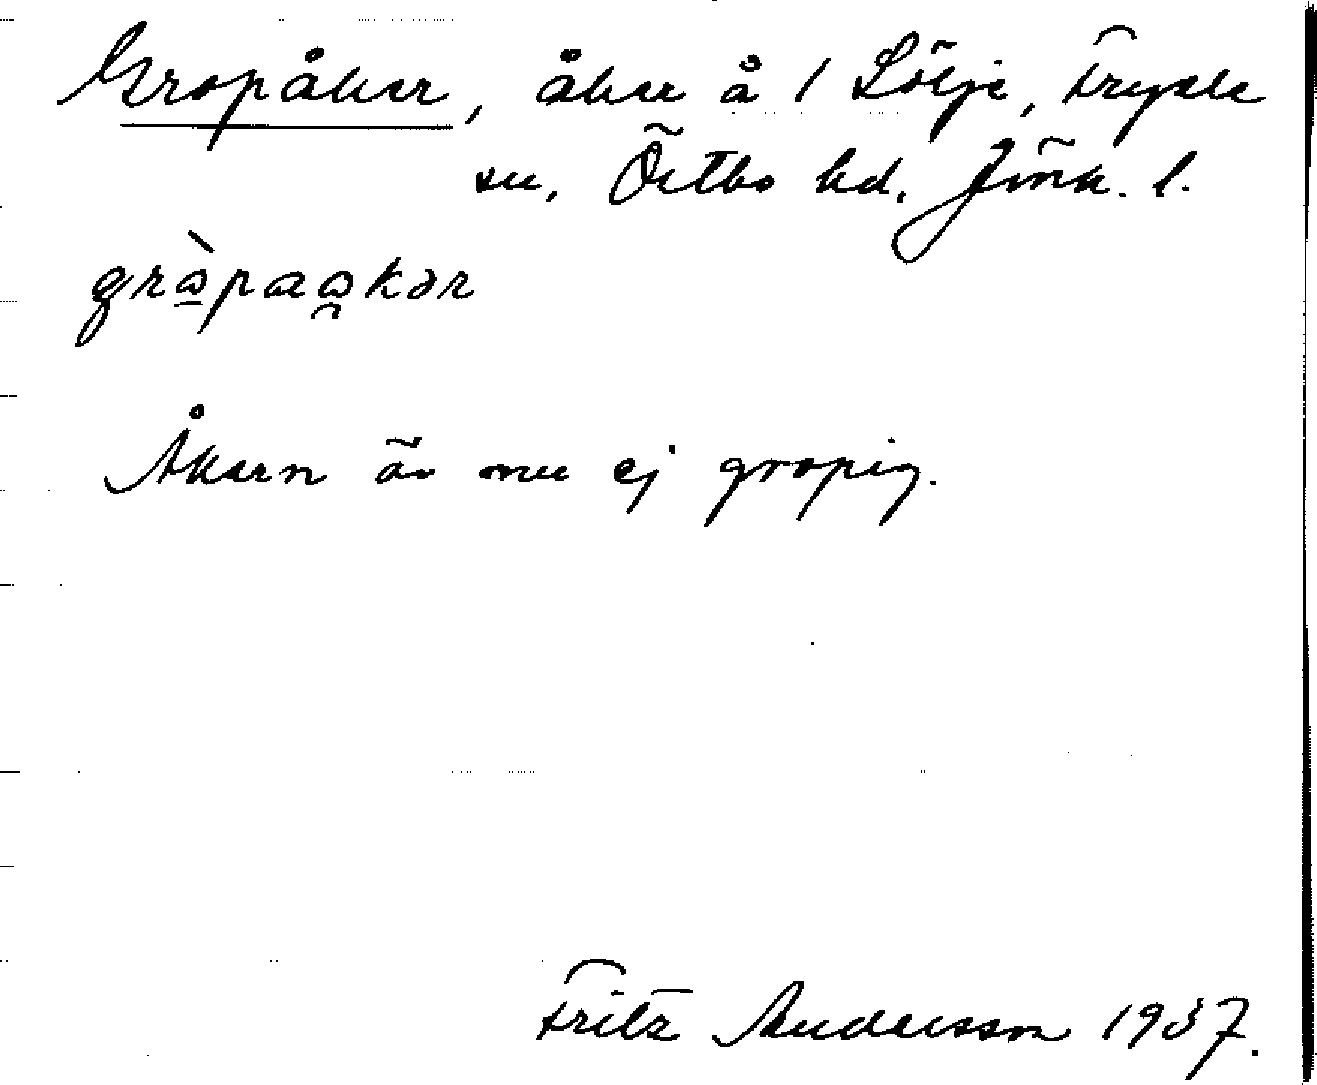 Gropåker, åker å 1 Sölje, Fryele
sn, Östbo hd. Jönk. l.
gròpaåkər
Åkern är nu ej gropig.
Fritz Andersson 1937.